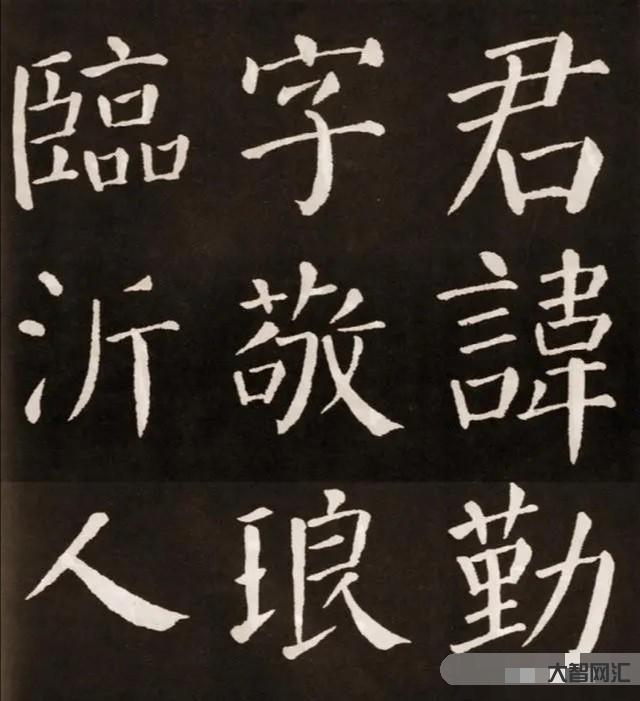 君諱勤
字敬琅
臨沂人
大智网汇